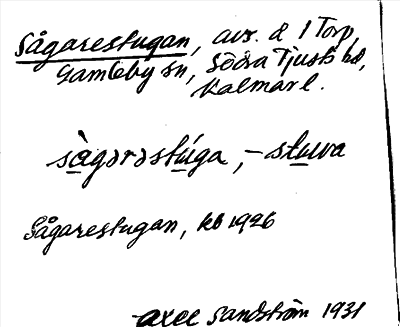 Sågarestugan, avs. å 1 Torp,
Gamleby sn, Södra Tjusts hd,
Kalmar l.
sàgərəstúga, -stuva
Sågarestugan, kb 1926
Axel Sandström 1931